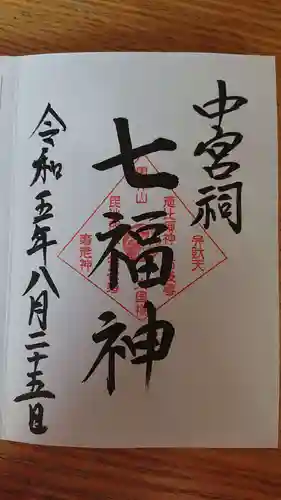 中宮祠
七福神
令和五年八月二十五日
弁財天
恵比寿神
寿老神